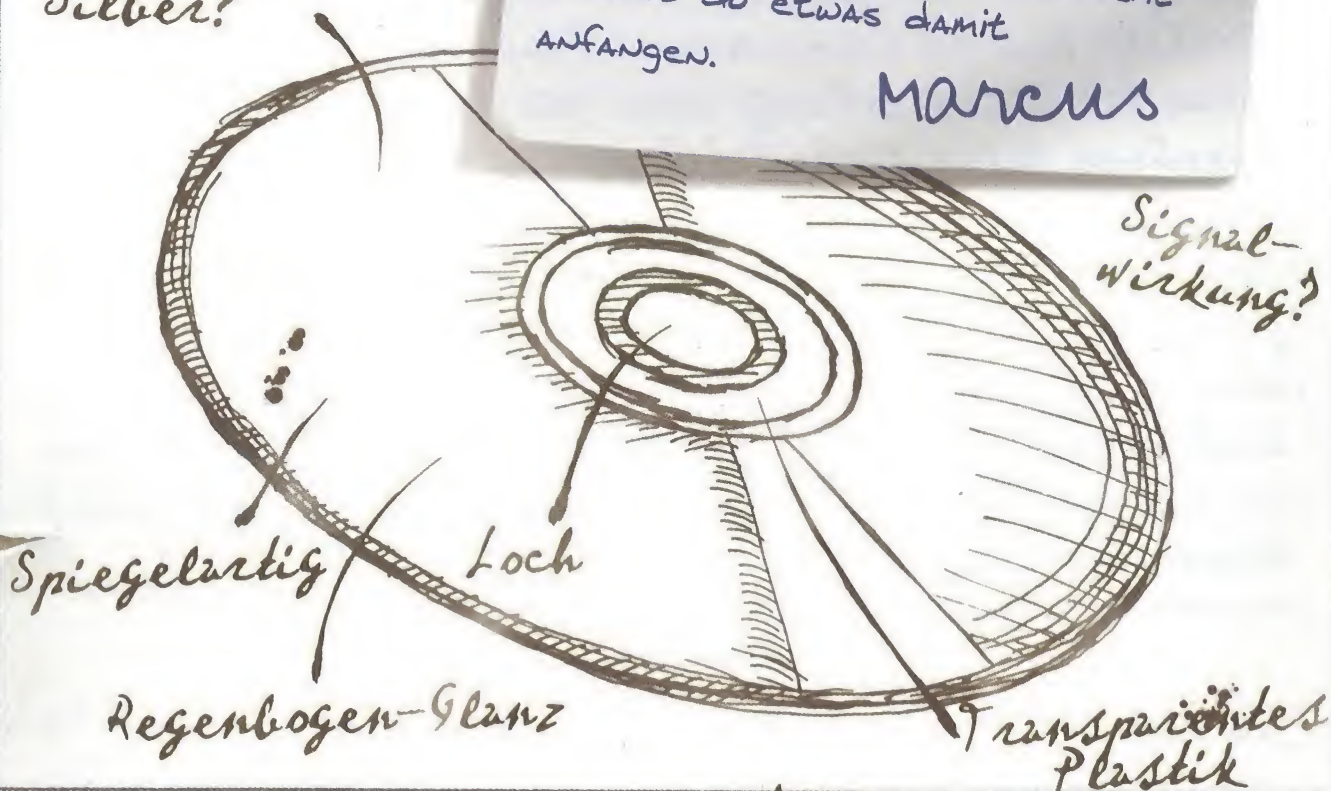 Silber?
etwas damit
ANfANgeN.
Marcus
Signal-
wirkung?
Spiegelartig
Loch
Regenbogen-Glanz
Transparentes
Plastik